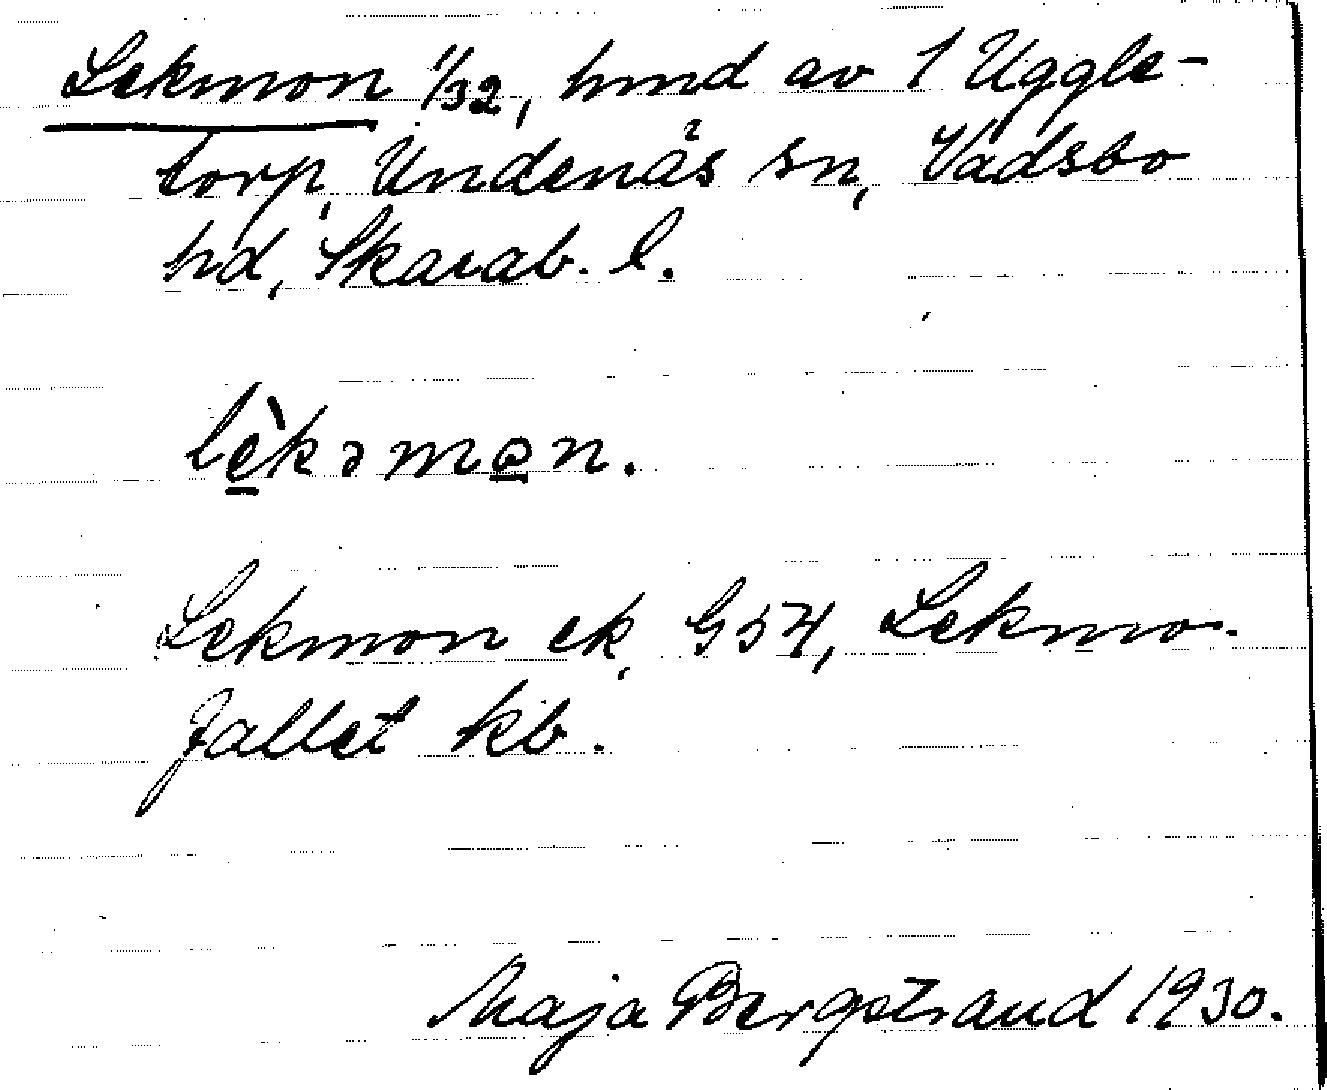 Lekmon 1/32, hmd av 1 Uggle-
torp, Undenäs sn, Vadsbo
hd, Skarab. l.
lèkəmon.
Lekmon ek, G54, Lekmo-
fallet kb.
Maja Bergstrand 1930.